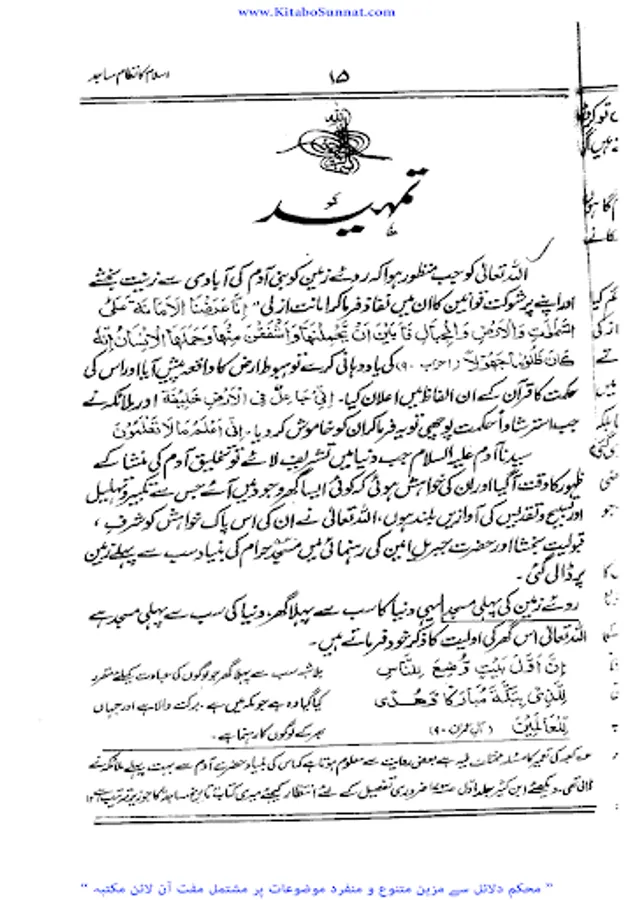 www.KitaboSunnat.com
اسلام کا نظام مساجد
۱۵
تمہید
اللہ تعالیٰ کو جب منظور ہوا کہ روئے زمین کو بنی آدم کی آبادی سے زینت بخشے
اور اپنے پر شوکت قوانین کا ان میں نفاذ فرما کر امانت ازلی "اِنَّا عَرَضْنَا الْاَمَانَةَ عَلَى
السَّمٰوٰتِ وَالْاَرْضِ وَالْجِبَالِ فَاَبَيْنَ اَنْ يَّحْمِلْنَهَا وَاَشْفَقْنَ مِنْهَا وَحَمَلَهَا الْاِنْسَانُ اِنَّهٗ
كَانَ ظَلُوْمًا جَهُوْلًا (احزاب ۹۰) کی یاد دہانی کرے تو ہبوط ارض کا واقعہ پیش آیا اور اس کی
حکمت کا قرآن کے ان الفاظ میں اعلان کیا۔ اِنِّيْ جَاعِلٌ فِي الْاَرْضِ خَلِيْفَة اور ملائکہ نے
جب استرشاداً حکمت پوچھی تو یہ فرما کر ان کو خاموش کر دیا۔ اِنِّيْ اَعْلَمُ مَا لَا تَعْلَمُوْنَ
سیدنا آدم علیہ السلام جب دنیا میں تشریف لائے تو تخلیق آدم کی منشا کے
ظہور کا وقت آگیا اور ان کی خواہش ہوئی کہ کوئی ایسا گھر وجود میں آئے جس سے تکبیر و تہلیل
اور تسبیح و تقدیس کی آوازیں بلند ہوں، اللہ تعالیٰ نے ان کی اس پاک خواہش کو شرفِ
قبولیت بخشا اور حضرت جبریل امین کی رہنمائی میں مسجد حرام کی بنیاد سب سے پہلے زمین
پر ڈالی گئی۔
روئے زمین کی پہلی مسجد یہی دنیا کا سب سے پہلا گھر، دنیا کی سب سے پہلی مسجد ہے
اللہ تعالیٰ اس گھر کی اولیت کا ذکر خود فرماتے ہیں۔
اِنَّ اَوَّلَ بَيْتٍ وُّضِعَ لِلنَّاسِ
لَلَّذِيْ بِبَكَّةَ مُبَارَكًا وَّهُدًى
لِّلْعَالَمِيْنَ (آل عمران ۹۰)
بلاشبہ سب سے پہلا گھر جو لوگوں کی عبادت کیلئے مقرر
کیا گیا وہ ہے جو مکہ میں ہے۔ برکت والا ہے اور جہاں
بھر کے لوگوں کا رہنما ہے۔
عہ کعبہ کی تعمیر کا مسئلہ مختلف فیہ ہے بعض روایت سے معلوم ہوتا ہے کہ اس کی بنیاد حضرت آدم سے بہت پہلے ملائکہ نے
ڈالی تھی۔ دیکھئے ابن کثیر جلد اول ضروری تفصیل کے لئے انتظار کیجئے میری کتاب تاریخ مساجد کا جو زیر ترتیب ہے ۱۲
" محکم دلائل سے مزین متنوع و منفرد موضوعات پر مشتمل مفت آن لائن مکتبہ "